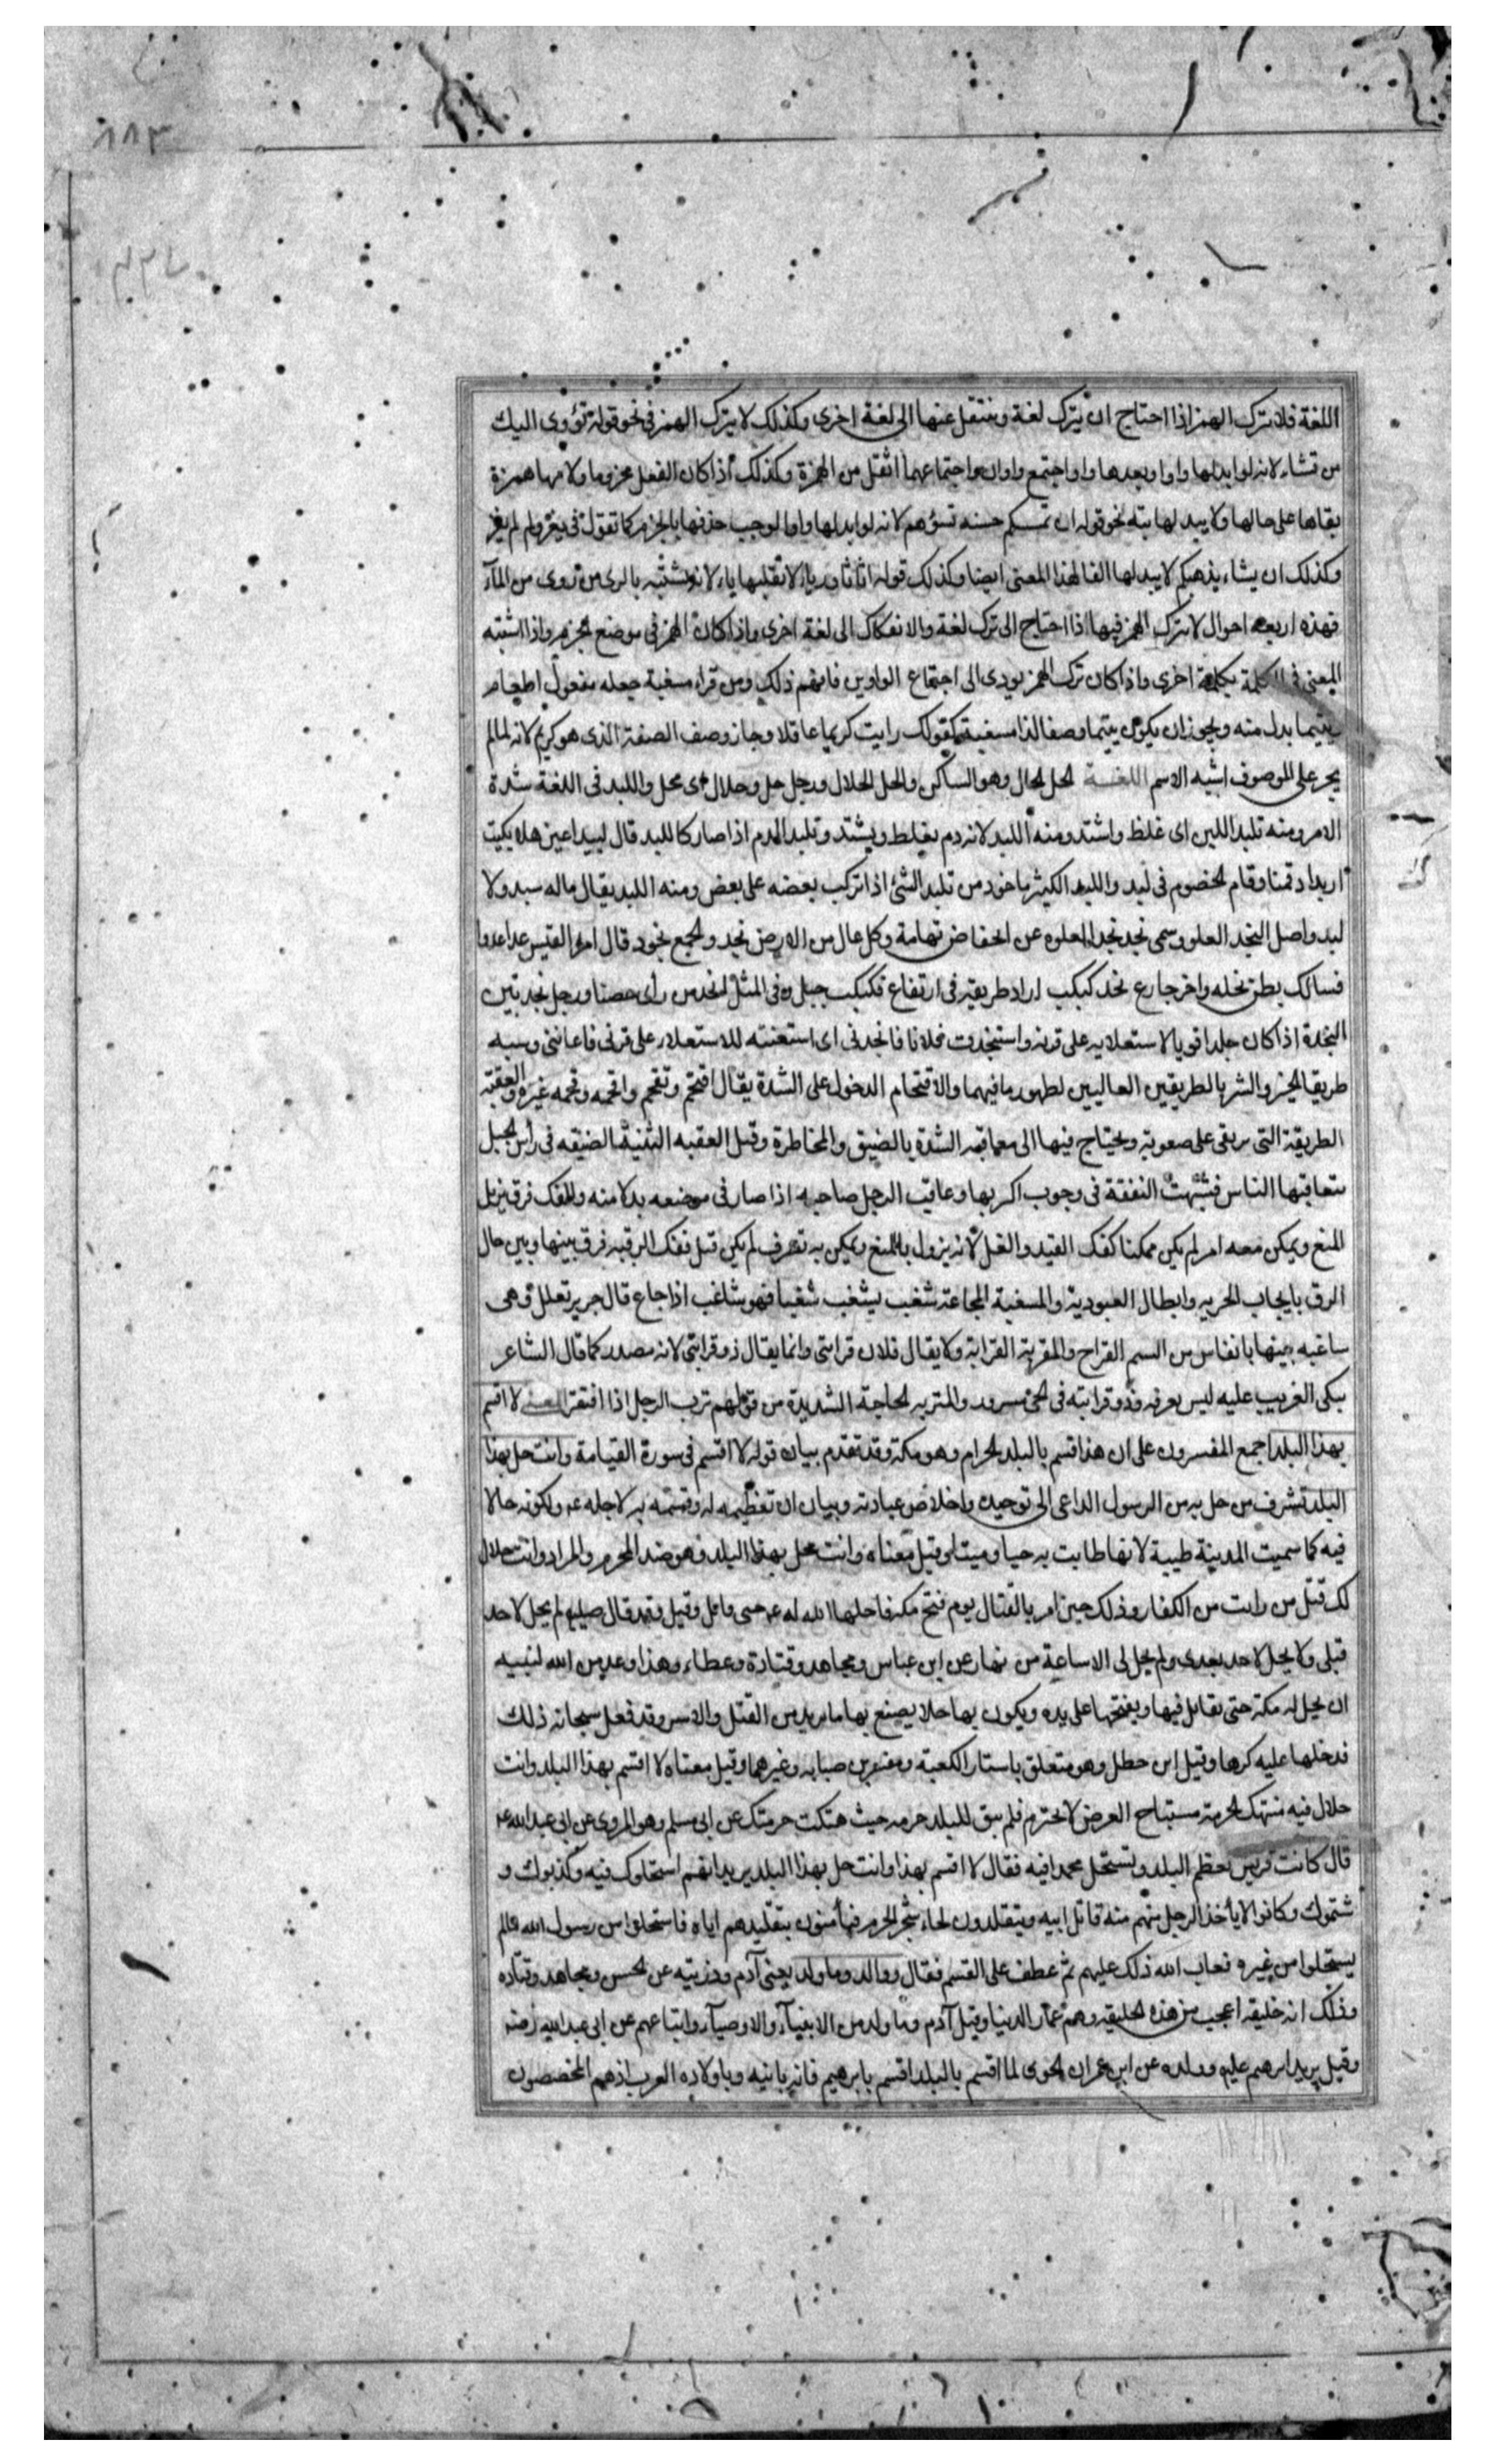 ١١٣
٧٣٤
اللغة فلا تترك الهمز اذا احتاج ان يترك لغة وينتقل عنها الى لغة اخرى وكذلك لا يترك الهمز في نحو قوله تؤوى اليك
من تشاء لانه لو ابدلها واوا وبعدها واو اجتمع واوان واجتماعهما اثقل من الهمزة وكذلك اذا كان الفعل مجزوما ولامها همزة
بقاها على حالها ولا يبدلها بته نحو قوله ان تمسكم حسنه تسؤهم لانه لو ابدلها واوا لوجب حذفها بالجزم كما تقول في يغزو لم يغز
وكذلك ان يشاء يذهبكم لا يبدلها الفا لهذا المعنى ايضا وكذلك قوله اثاثا ورءيا لا تقلبها ياء لانه تشتبه بالرى من روى من المآء
فهذه اربعه احوال لا يترك الهمز فيها اذا احتاج الى ترك لغة والانفكاك الى لغة اخرى واذا كان الهمز في موضع الجزم واذا اشتبه
المعنى في الكلمة بكلمة اخرى واذا كان ترك الهمز يودى الى اجتماع الواوين فافهم ذلك ومن قراء مسغبة جعله مفعول اطعام
ويتيما بدل منه ويجوز ان يكون يتيما وصفا لذا مسغبة كقولك رايت كريما عاقلا وجاز وصف الصفة الذى هو كريم لانه لما لم
يجر على الموصوف اشبه الاسم اللغـــة الحل الحال وهو الساكن والحل الحلال ورجل حل وحلال اى محل واللبد في اللغة شدة
الامر ومنه تلبد اللبن اى غلظ واشتد ومنه اللبد لانه دم يغلط ويشتد وتلبد الدم اذا صار كاللبد قال لبيد اعين هلا بكيت
اربد اذ قمنا وقام الخصوم في لبد واللبد الكثير ماخوذ من تلبد الشئ اذا تركب بعضه على بعض ومنه اللبد يقال ماله سبد ولا
لبد واصل النجد العلو وسمى نجد نجدا لعلوه عن انخفاض تهامة وكل عال من الارض نجد والجمع نجود قال امرؤ القيس غداة غدوا
فسالك بطن نخله واخر جازع نجد كبكب اراد طريقة في ارتفاع فكبكب جبل وفي المثل انجد من راى حصنا ورجل نجد بين
النجدة اذا كان جلدا قويا لاستعلايه على قرنه واستنجدت فلانا فانجدنى اى استعنته للاستعلاء على قرنى فاعاننى وشبه
طريقا الخير والشر بالطريقين العاليين لظهور ما فيهما والاقتحام الدخول على الشدة يقال اقتحم وتقحم واقحمه وقحمه غيره والعقبة
الطريقة التى يرتقى على صعوبة ويحتاج فيها الى معاقبه الشدة بالضيق والمخاطرة وقيل العقبه الثنية الضيقه في راس الجبل
يتعاقبها الناس فشبهت النفقة في وجوب البر بها وعاقب الرجل صاحبه اذا صار في موضعه بدلا منه والفك فرق يزيل
المنع ويمكن معه امر لم يكن ممكنا كفك القيد والغل لانه يزول به المنع ويمكن به تصرف لم يكن قبل ففك الرقبه فرق بينها وبين حال
الرق بايجاب الحريه وابطال العبودية والمسغبة المجاعة شغب يشغب شغبا فهو شاغب اذا جاع قال جرير تعلل وهى
ساغبه بنيها بانفاس من الشبم القراح والمقربة القرابة ولا يقال فلان قرابتى وانما يقال ذو قرابتى لانه مصدر كما قال الشاعر
يبكى الغريب عليه ليس يعرفه وذو قرابته في الحى مسرور والمتربه الحاجة الشديدة من قولهم ترب الرجل اذا افتقر المعنى لا اقسم
بهذا البلد اجمع المفسرون على ان هذا قسم بالبلد الحرام وهو مكة وقد تقدم بيان قوله لا اقسم في سورة القيامة وانت حل بهذا
البلد تشرف من حل به من الرسول الداعى الى توحيده واخلاص عبادته وبيان ان تعظيمه له وقسمه به لاجله عم ولكونه حالا
فيه كما سميت المدينة طيبة لانها طابت به حيا وميتا وقيل معناه وانت محل بهذا البلد وهو ضد المحرم والمراد وانت حلال
لك قتل من رايت من الكفار وذلك حين امر بالقتال يوم فتح مكه فاحلها الله له عم حتى قاتل وقيل وقد قال صلى لم يحل لاحد
قبلى ولا يحل لاحد بعدى ولم يحل لى الا ساعة من نهار عن ابن عباس ومجاهد وقتادة وعطاء وهذا وعد من الله لنبيه
ان يحل له مكة حتى يقاتل فيها ويفتحها على يده ويكون بها حلا يصنع بها ما يريد من القتل والاسر وقد فعل سبحانه ذلك
فدخلها عليه كرها وقتل ابن خطل وهو متعلق باستار الكعبة ومقيس بن صبابه وغيرهما وقيل معناه لا اقسم بهذا البلد وانت
حلال فيه منتهك الحرمة مستباح العرض لا تحترم فلم يبق للبلد حرمه حيث هتكت حرمتك عن ابى مسلم وهو المروى عن ابى عبد الله عم
قال كانت قريش تعظم البلد وتستحل محمدا فيه فقال لا اقسم بهذا وانت حل بهذا البلد يريد انهم استحلوك فيه وكذبوك و
شتموك وكانوا لا يأخذ الرجل منهم منه قاتل ابيه ويتقلدون لحاء شجر الحرم فيأمنون بتقليدهم اياه فاستحلوا من رسول الله ما لم
يستحلوا من غيره فعاب الله ذلك عليهم ثم عطف على القسم فقال ووالد وما ولد يعنى آدم وذريته عن الحسن ومجاهد وقتاده
وذلك انه خليقه اعجب من هذه الخليقه وهم عمار الدنيا وقيل آدم وما ولد من الانبيآء والاوصيآء واتباعهم عن ابى عبد الله
وقيل يريد ابرهيم عليه وولده عن ابى عمران الجونى لما اقسم بالبلد اقسم بابرهيم فانه بانيه وباولاده العرب اذ هم المخصصون